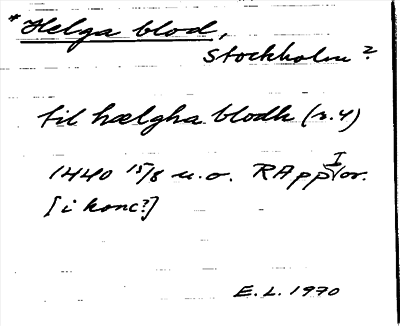 *Helga blod,
Stockholm?
til hælgha blodh (s. 4)
1440 15/8 u.o. RApp I or.
[i konc?]
E.L. 1970